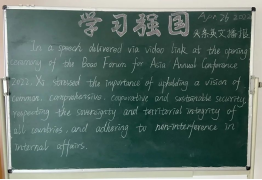 学习强国
Apr 26 2022
头条英文播报
In a speech delivered via video link at the opening
ceremony of the Boao Forum for Asia Annual Conference
2022, Xi stressed the importance of upholding a vision of
common, comprehensive, cooperative and sustainable security,
respecting the sovereignty and territorial integrity of
all countries, and adhering to non-interference in
internal affairs.